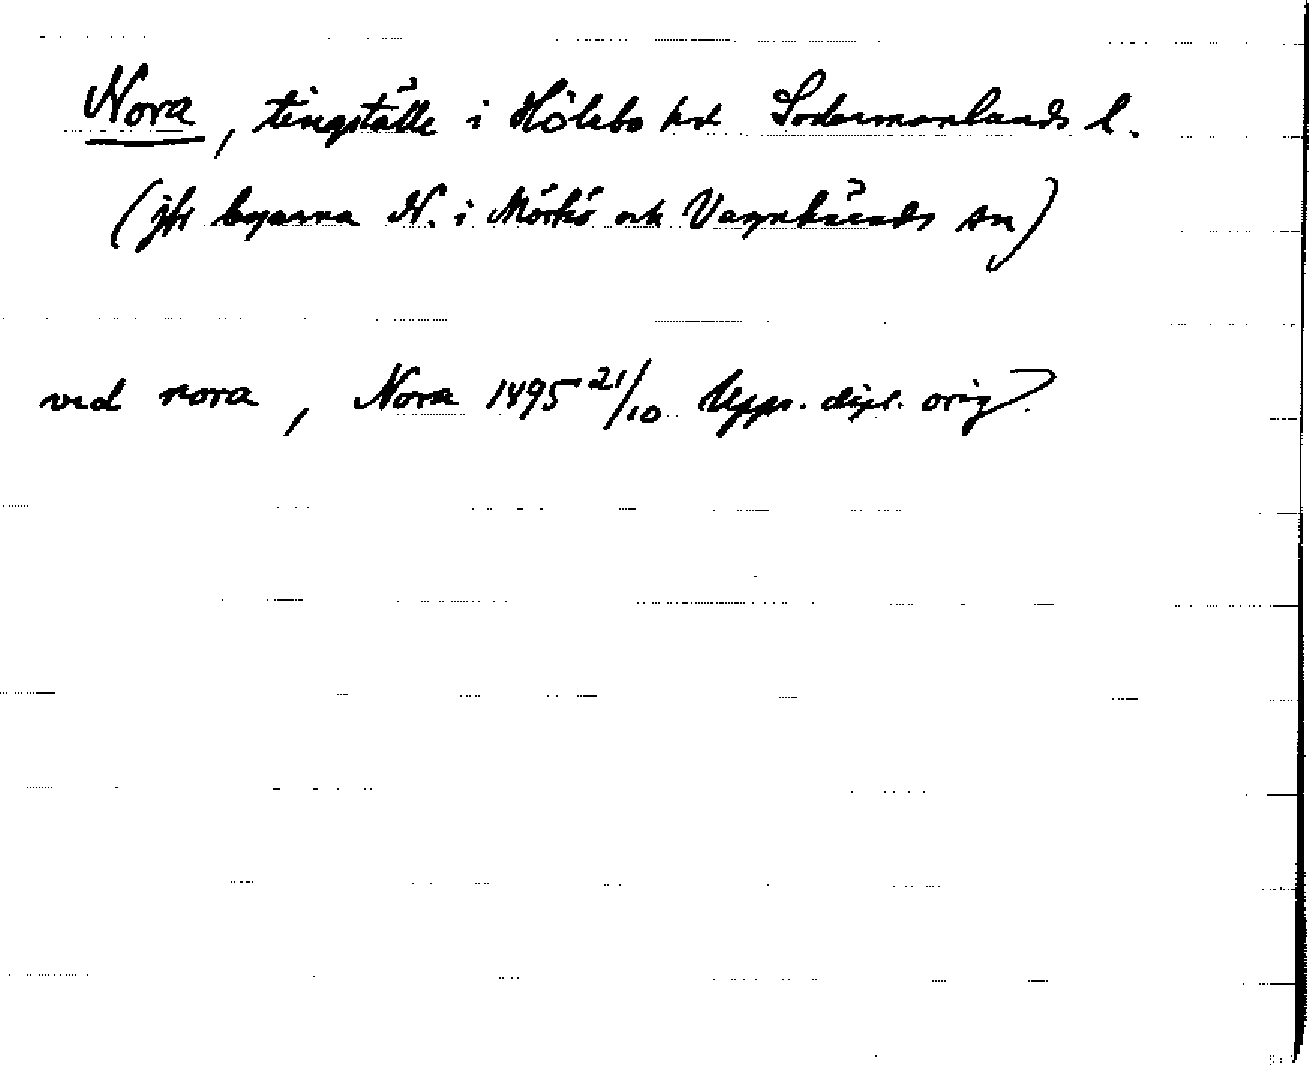 Nora, tingställe i Hölebo hd Södermanlands l.
(jfr byarna N. i Mörkö och Vagnhärads sn)
vid nora, Nora 1495 21/10 Upps. dipl. orig.